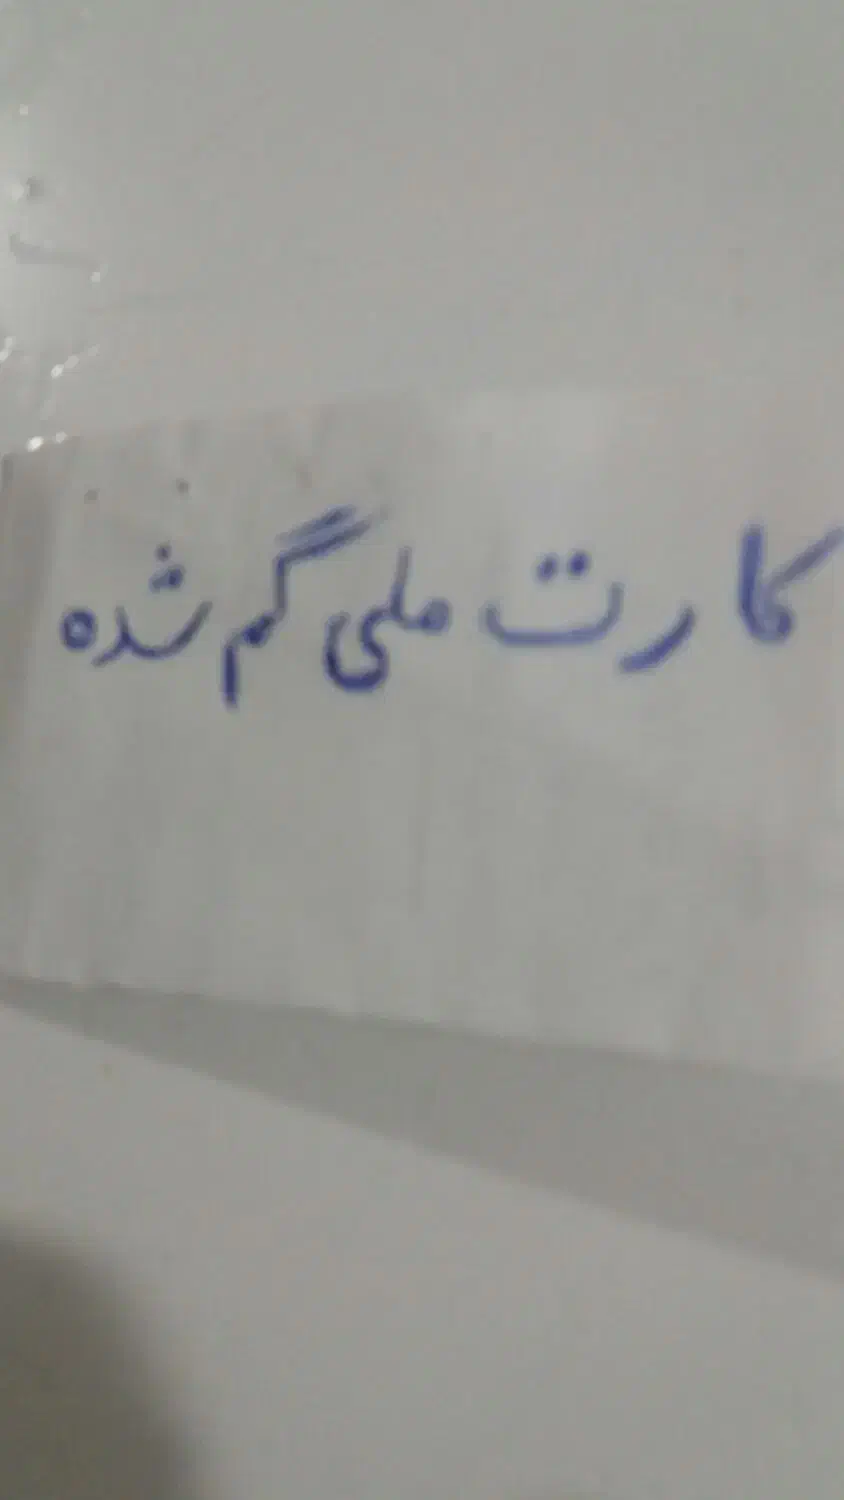 کارت ملی گم شده